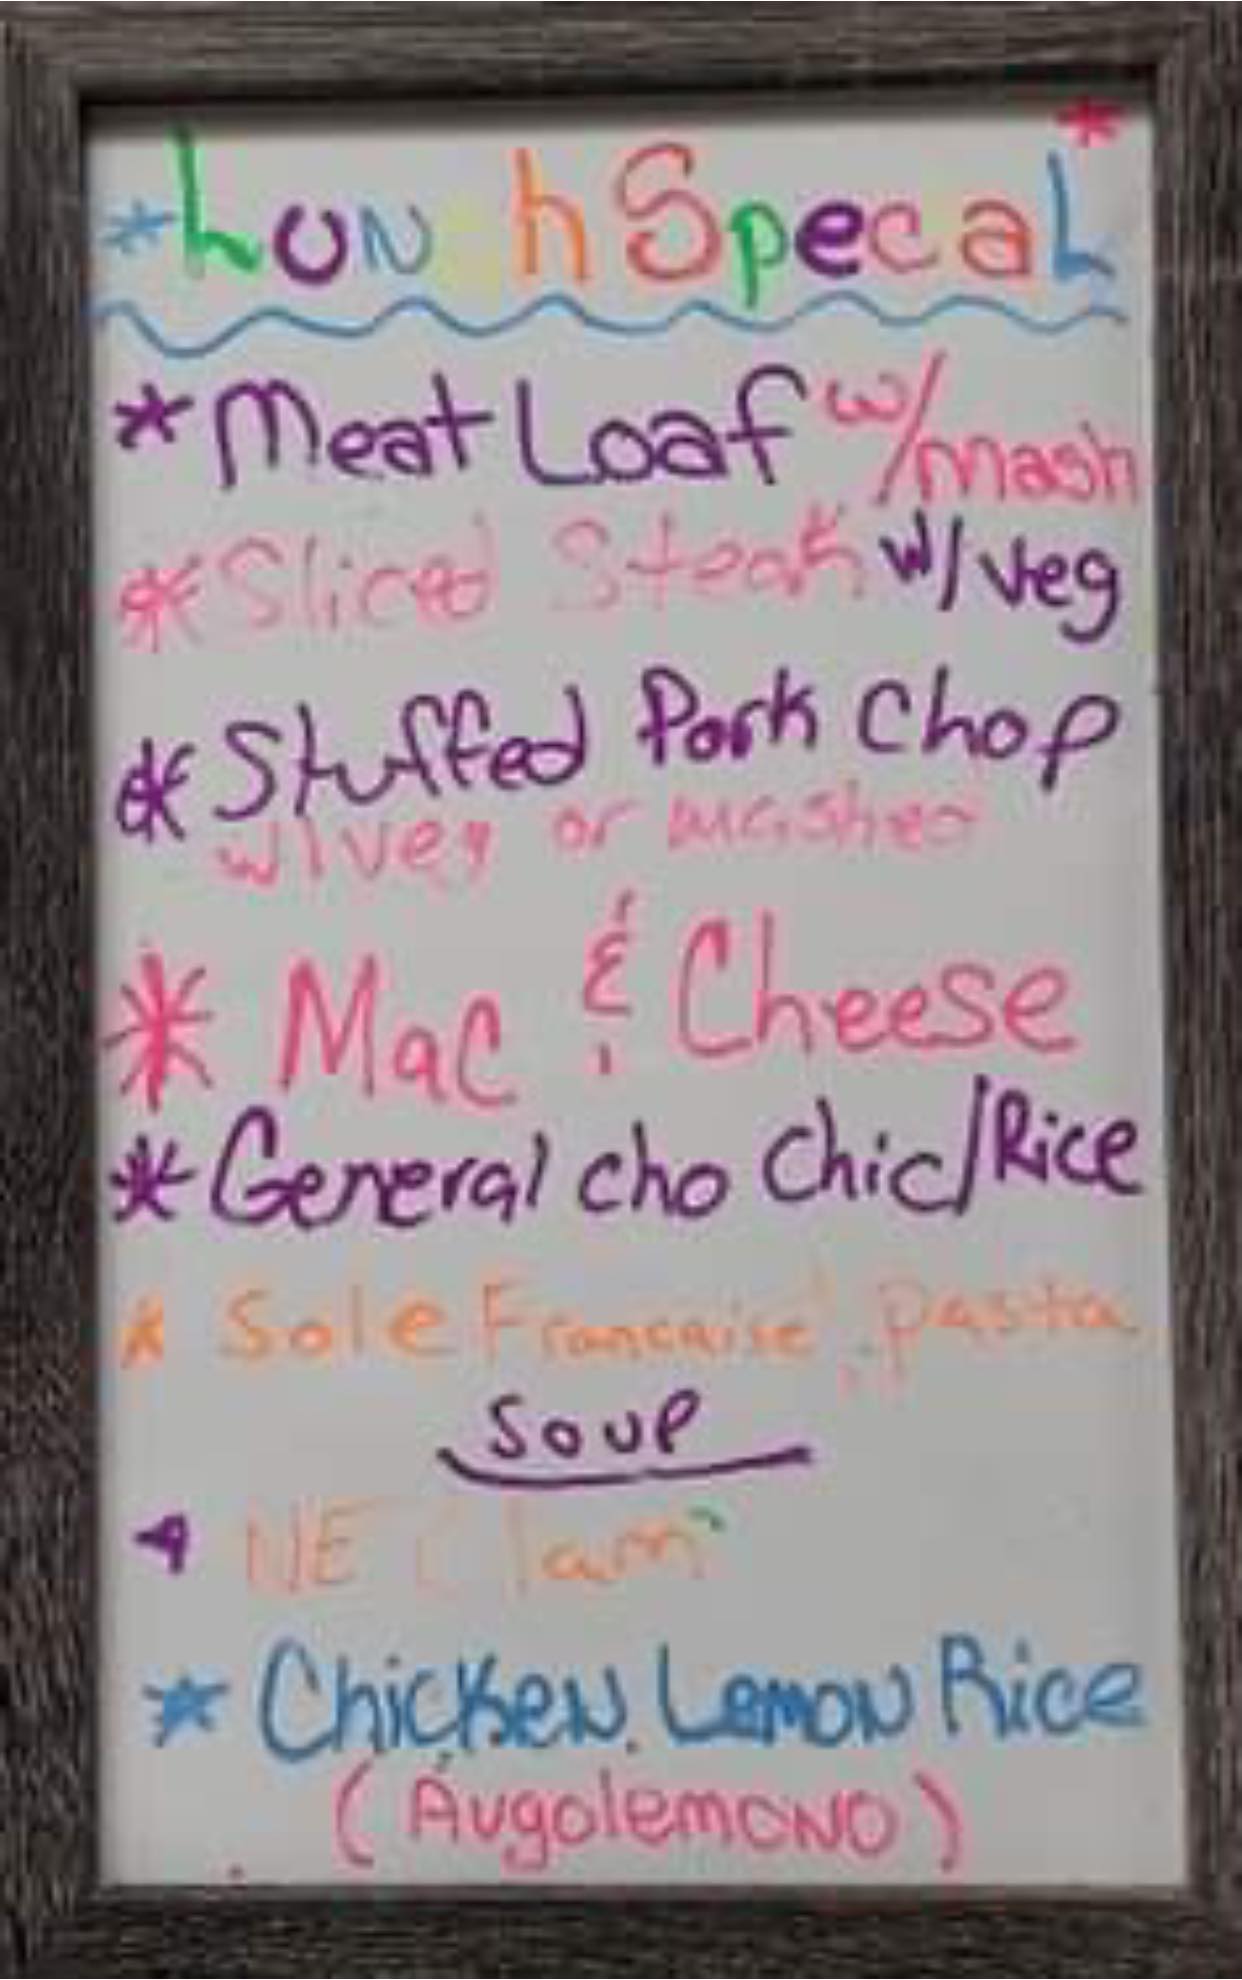 *Lunch Specal*
* Meat Loaf w/mash
* Sliced Steak w/veg
* Stuffed Pork Chop
w/veg or mashed
* Mac & Cheese
* General cho Chic/Rice
* Sole Francaise, pasta
Soup
NE Clam
* Chicken Lemon Rice
(Avgolemono)